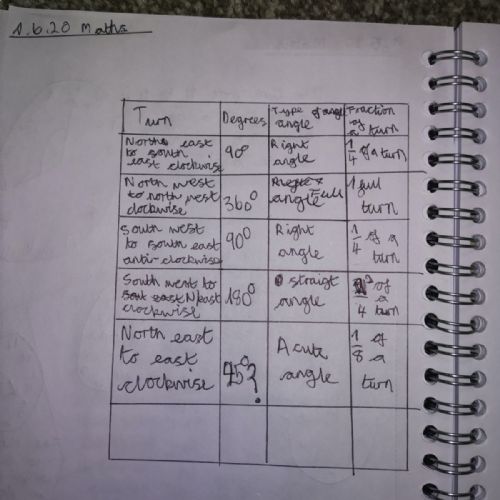 1.6.20 Maths
Turn
Degrees
Type of angle
angle
Fraction
of
a turn
North east
to south
east clockwise
90°
Right
angle
1/4 of a turn
North west
to north west
clockwise
360°
angle Full
1 full
turn
South west
to south east
anti-clockwise
90°
Right
angle
1/4 of a
turn
South west to
North east
clockwise
180°
straigt
angle
of
a
4 turn
North east
to east
clockwise
45°?
Acute
angle
1/8 of
a
turn